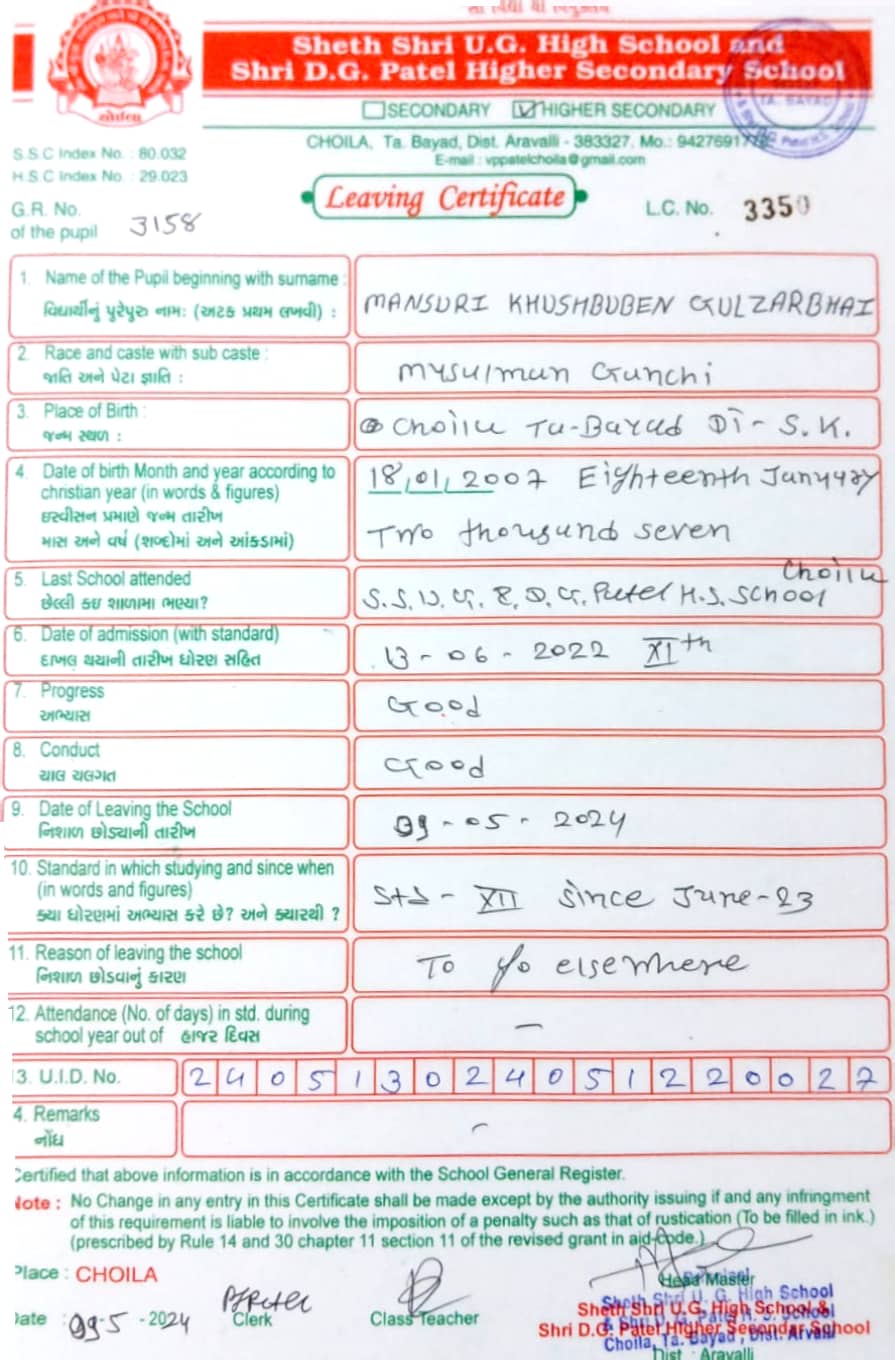 Sheth Shri U.G. High School and
Shri D.G. Patel Higher Secondary School
SECONDARY HIGHER SECONDARY
CHOILA, Ta. Bayad, Dist. Aravalli - 383327. Mo.: 9427691
E-mail : vppatelchoila@gmail.com
S.S.C Index No. : 80.032
H.S.C Index No. : 29.023
Leaving Certificate
L.C. No. 3350
G.R. No.
of the pupil 3158
1. Name of the Pupil beginning with surname :
વિદ્યાર્થીનું પુરેપુરુ નામ: (અટક પ્રથમ લખવી) :
MANSURI KHUSHBUBEN GULZARBHAI
2. Race and caste with sub caste :
જાતિ અને પેટા જ્ઞાતિ :
Musulman Gunchi
3. Place of Birth :
જન્મ સ્થળ :
Choila Ta-Bayad Di - S.K.
4. Date of birth Month and year according to
christian year (in words & figures)
ઇસ્વીસન પ્રમાણે જન્મ તારીખ
માસ અને વર્ષ (શબ્દોમાં અને આંકડામાં)
18/01/2007 Eighteenth January
Two thousand seven
5. Last School attended
છેલ્લી કઇ શાળામા ભણ્યા?
Choila
S.S.U.G. & D.G. Patel H.S. School
6. Date of admission (with standard)
દાખલ થયાની તારીખ ધોરણ સહિત
13 - 06 - 2022 XIth
7. Progress
અભ્યાસ
Good
8. Conduct
ચાલ ચલગત
Good
9. Date of Leaving the School
નિશાળ છોડ્યાની તારીખ
09 - 05 - 2024
10. Standard in which studying and since when
(in words and figures)
ક્યા ધોરણમાં અભ્યાસ કરે છે? અને ક્યારથી ?
Std - XII since June-23
11. Reason of leaving the school
નિશાળ છોડવાનું કારણ
To go elsewhere
12. Attendance (No. of days) in std. during
school year out of હાજર દિવસ
–
3. U.I.D. No. 2 4 0 5 1 3 0 2 4 0 5 1 2 2 0 0 2 7
4. Remarks
નોંધ
–
Certified that above information is in accordance with the School General Register.
Note : No Change in any entry in this Certificate shall be made except by the authority issuing if and any infringment
of this requirement is liable to involve the imposition of a penalty such as that of rustication (To be filled in ink.)
(prescribed by Rule 14 and 30 chapter 11 section 11 of the revised grant in aid-code.)
Place : CHOILA
Date : 09-5-2024
Clerk
Class Teacher
Head Master
Sheth Shri U.G. High School &
Shri D.G. Patel Higher Secondar School
Choila, Ta. Bayad, Dist. Arvalli
Dist : Aravalli